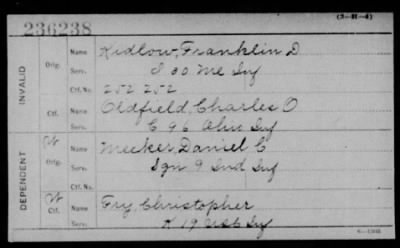 (3-H-4)
236238
INVALID
Orig.
Name Kidlow, Franklin D
Serv. I 30 Me Inf
Ctf. No. 252 252
Ctf.
Name Oldfield, Charles O
Serv. C 96 Ohio Inf
DEPENDENT
W Orig.
Name Meeker, Daniel C
Serv. Ign 9 Ind Inf
Ctf. No.
W Ctf.
Name Fry, Christopher
Serv. K 19 Inf